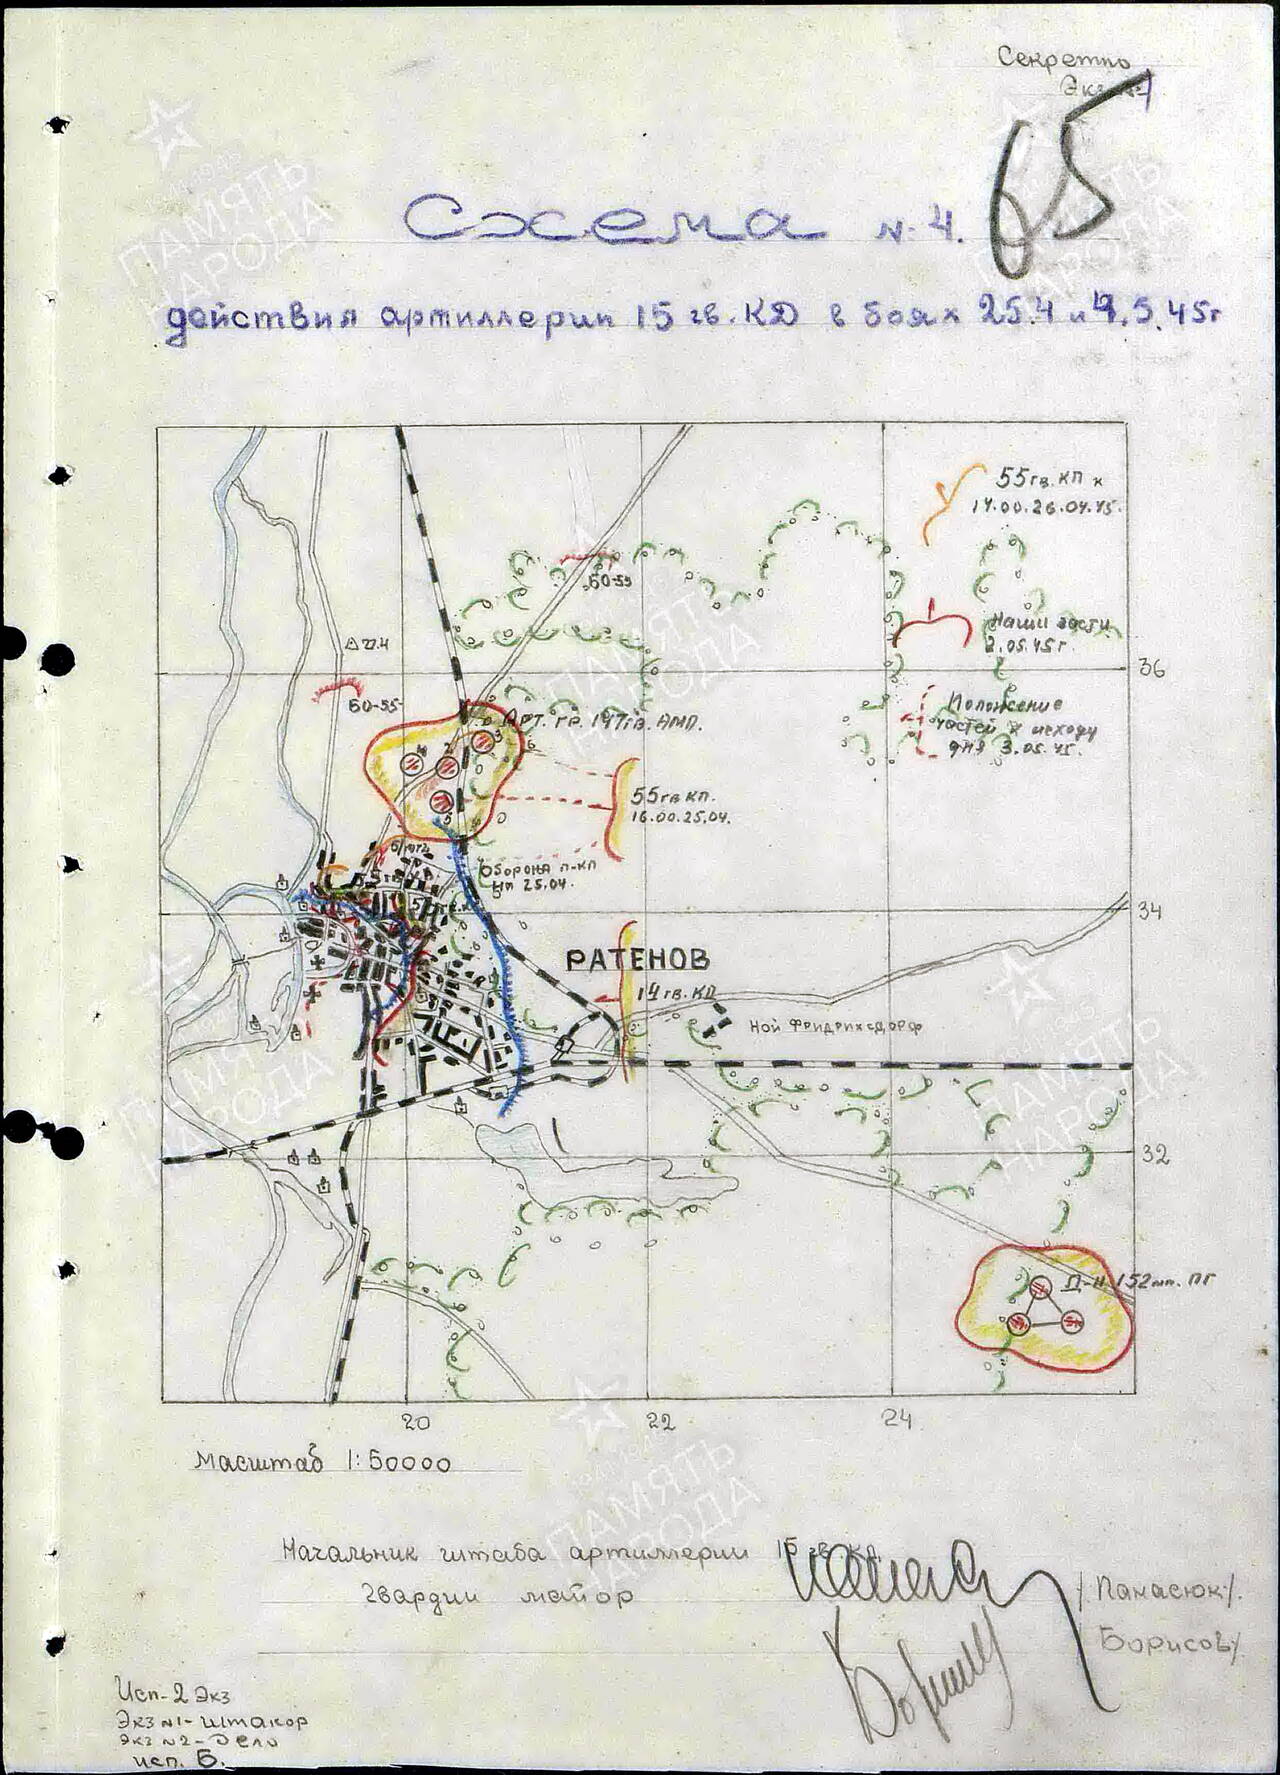 Секретно
Экз №1
65
Схема №4.
действия артиллерии 15 гв. КД в боях 25.4 и 4.5.45г
55 гв. КП к
14.00. 26.04.45.
БО-55
△ 27.4
Наши части
2.05.45г.
36
БО-55
Положение
частей к исходу
дня 3.05.45.
Арт. гр. 147 гв. АМП.
55 гв КП.
16.00. 25.04.
Оборона п-ка
25.04.
34
РАТЕНОВ
14 гв. КД
Ной Фридрихсдорф
32
Д-н 152мм. ПГ
20
22
24
Масштаб 1:50000
Начальник штаба артиллерии 15 гв. КД.
гвардии майор
/Панасюк/.
Борисов/
Исп-2 Экз
Экз №1-штакор
Экз №2-Дело
исп. Б.
ПАМЯТЬ
НАРОДА